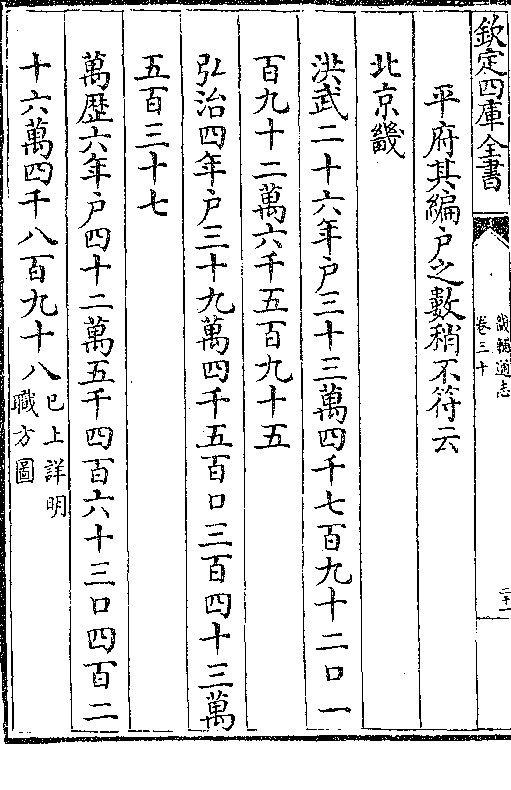 欽定四庫全書
畿輔通志
卷三十
二十一
平府其編户之數稍不符云
北京畿
洪武二十六年户三十三萬四千七百九十二口一
百九十二萬六千五百九十五
弘治四年户三十九萬四千五百口三百四十三萬
五百三十七
萬歴六年户四十二萬五千四百六十三口四百二
十六萬四千八百九十八已上詳明
職方圖